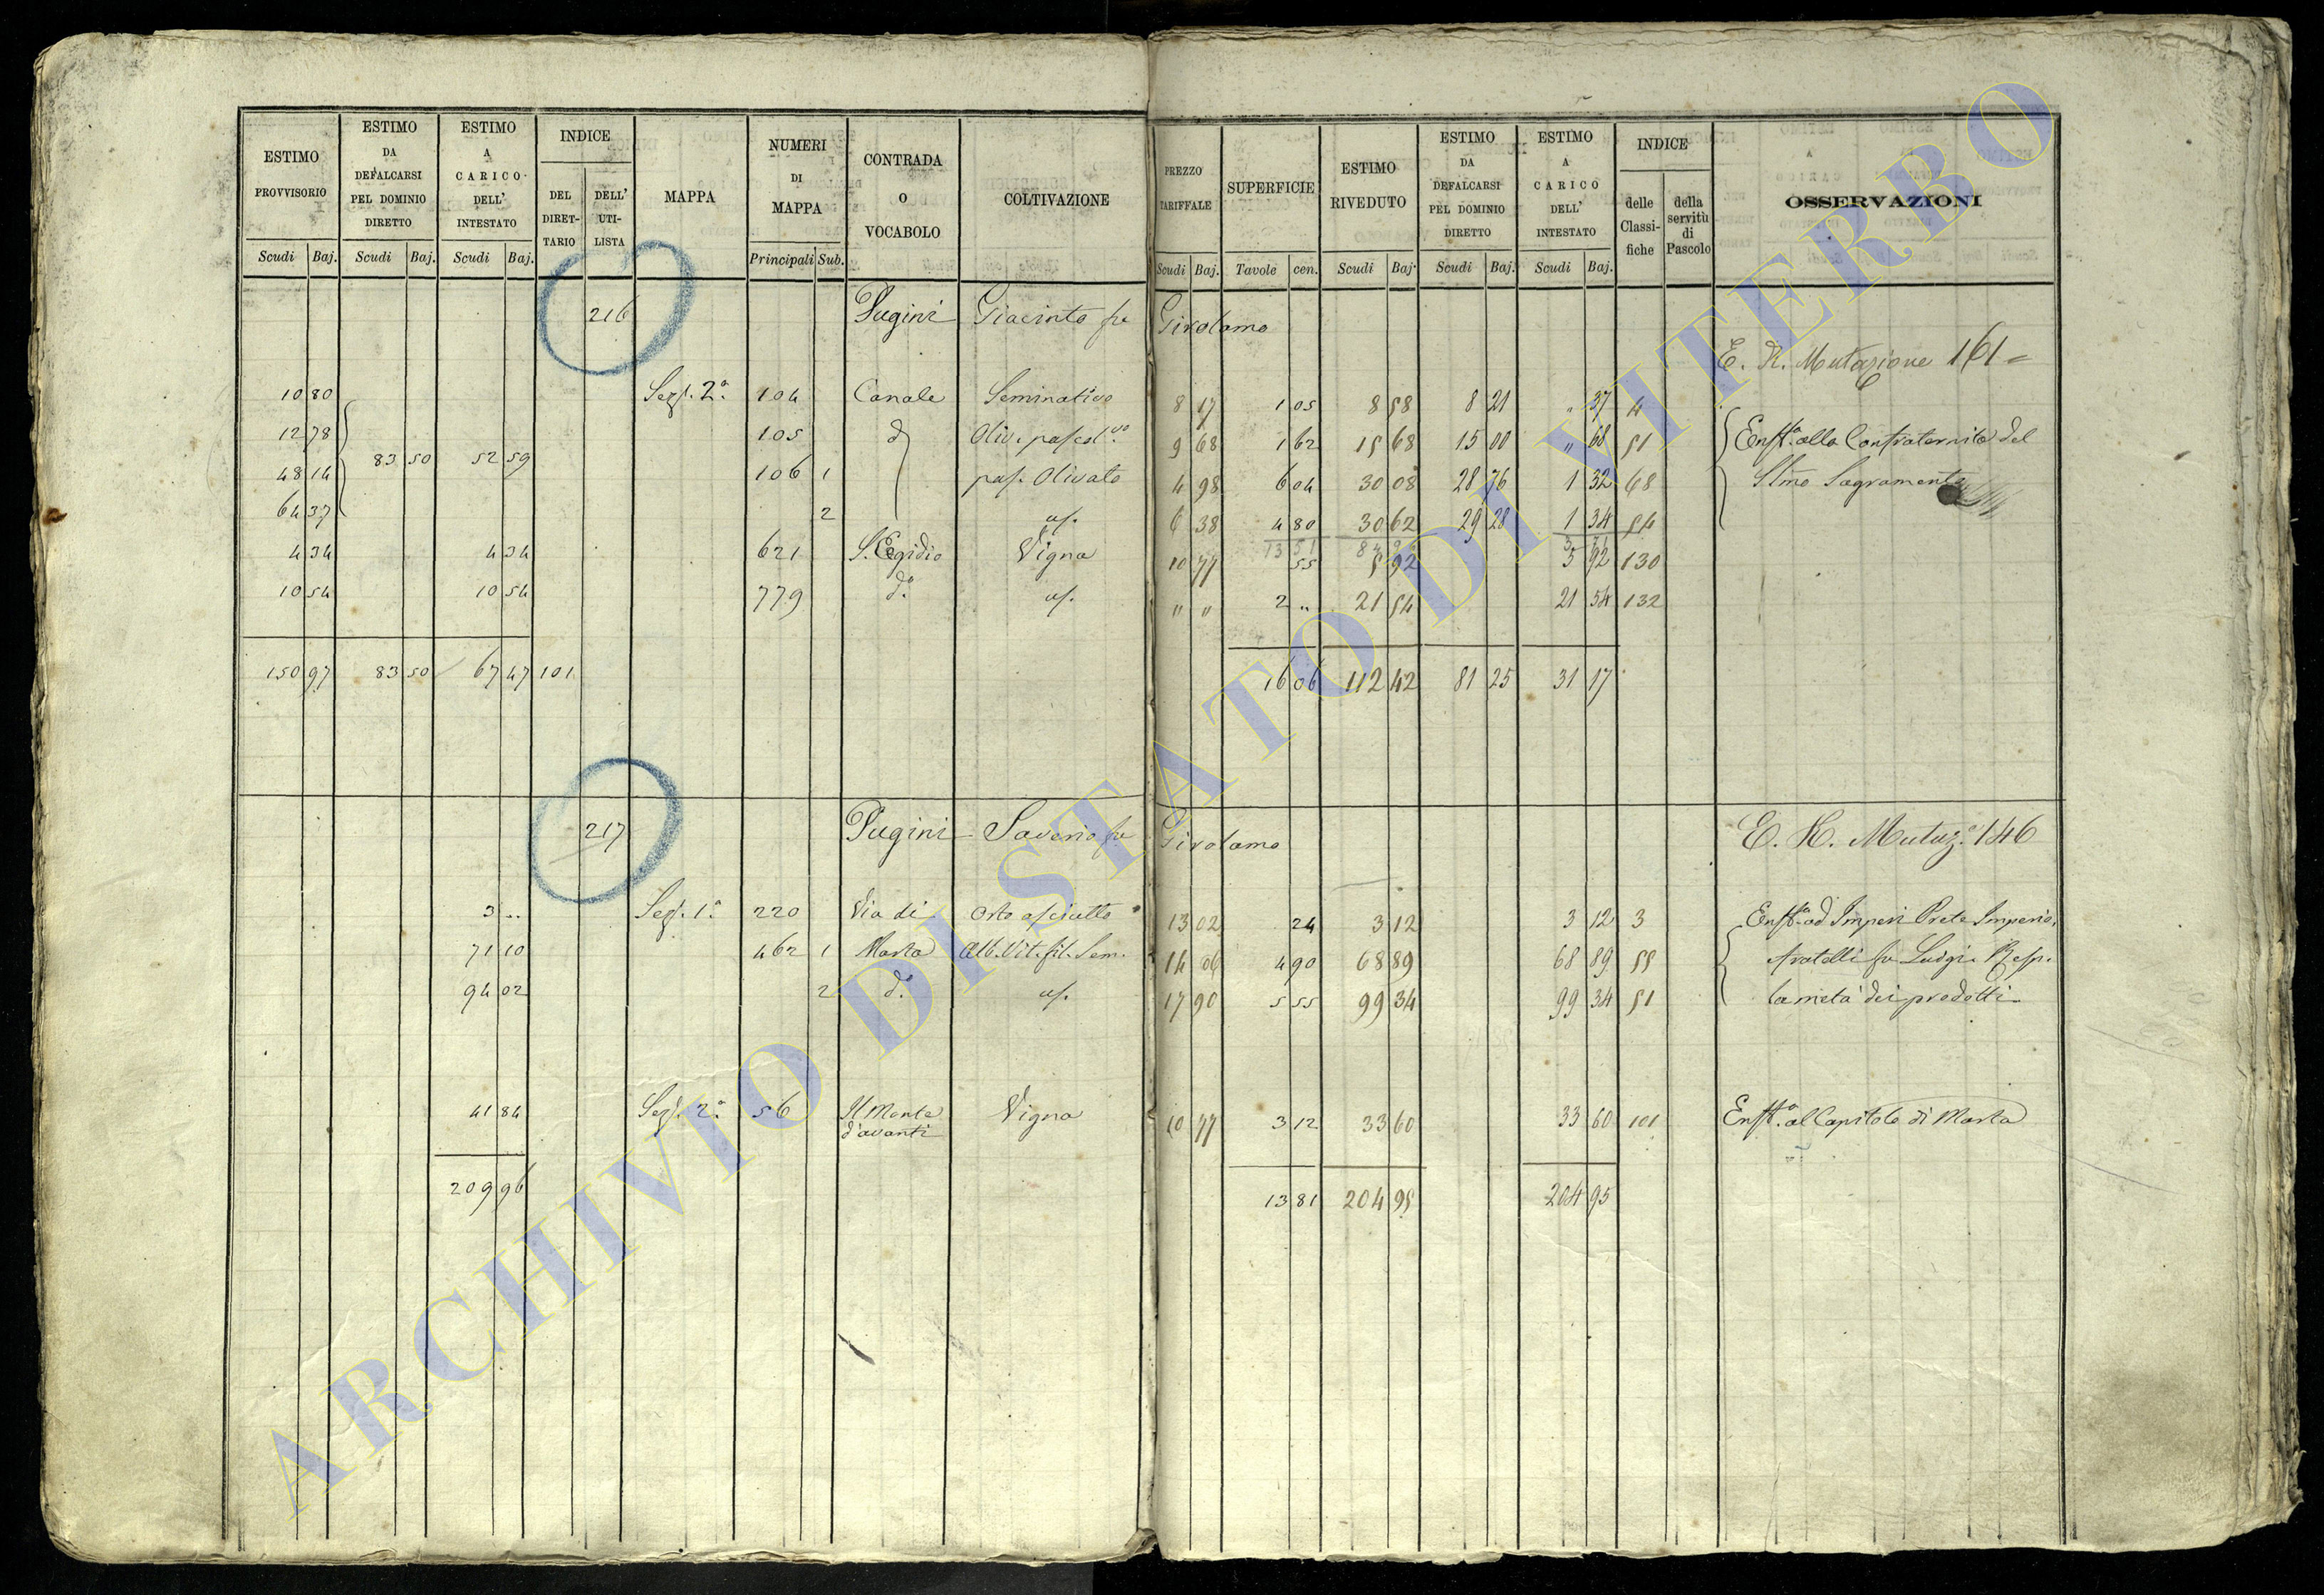 ESTIMO PROVVISORIO | ESTIMO DA DEFALCARSI PEL DOMINIO DIRETTO | ESTIMO A CARICO DELL' INTESTATO | INDICE DEL DIRETTARIO | DELL' UTILISTA | MAPPA | NUMERI DI MAPPA | CONTRADA O VOCABOLO | COLTIVAZIONE | PREZZO TARIFFALE | SUPERFICIE | ESTIMO RIVEDUTO | ESTIMO DA DEFALCARSI PEL DOMINIO DIRETTO | ESTIMO A CARICO DELL' INTESTATO | INDICE delle Classifiche | della servitù di Pascolo | OSSERVAZIONI
Scudi Baj. | Scudi Baj. | Scudi Baj. | Principali Sub. | Scudi Baj. | Tavole cen. | Scudi Baj. | Scudi Baj. | Scudi Baj.
216 Pugini Giacinto fu Girolamo
E. R. Mutazione 161
10 80 Sez. 2ª 104 Canale Seminativo 8 17 1 05 8 58 8 21 " 37 4
12 78 105 do Oliv. pascol.vo 9 68 1 62 15 68 15 00 " 68 51 Enft.a alla Confraternita del
83 50 52 59
48 14 106 1 pas. Olivato 4 98 6 04 30 08 28 76 1 32 68 SSmo Sagramento
64 37 2 us. 6 38 4 80 30 62 29 28 1 34 54
13 51
4 34 4 34 621 S. Egidio Vigna 10 77 55 5 92 5 92 130
10 54 10 54 779 do us. " " 2 " 21 54 21 54 132
150 97 83 50 67 47 101 16 06 112 42 81 25 31 17
217 Pugini Saverio fu Girolamo E. R. Mutaz.e 146
3 .. Sez. 1ª 220 Via di Orto asciutto 13 02 24 3 12 3 12 3 Enft.a ad Imperi Prete Imperio,
71 10 462 1 Marta Alb. Vit. fil. Sem. 14 06 4 90 68 89 68 89 55 fratelli fu Luigi. Risp.
94 02 2 do us. 17 90 5 55 99 34 99 34 51 la metà dei prodotti
41 84 Sez. 2ª 56 Il Monte d'avanti Vigna 10 77 3 12 33 60 33 60 101 Enft.a al Capitolo di Marta
209 96 13 81 204 95 204 95
ARCHIVIO DI STATO DI VITERBO